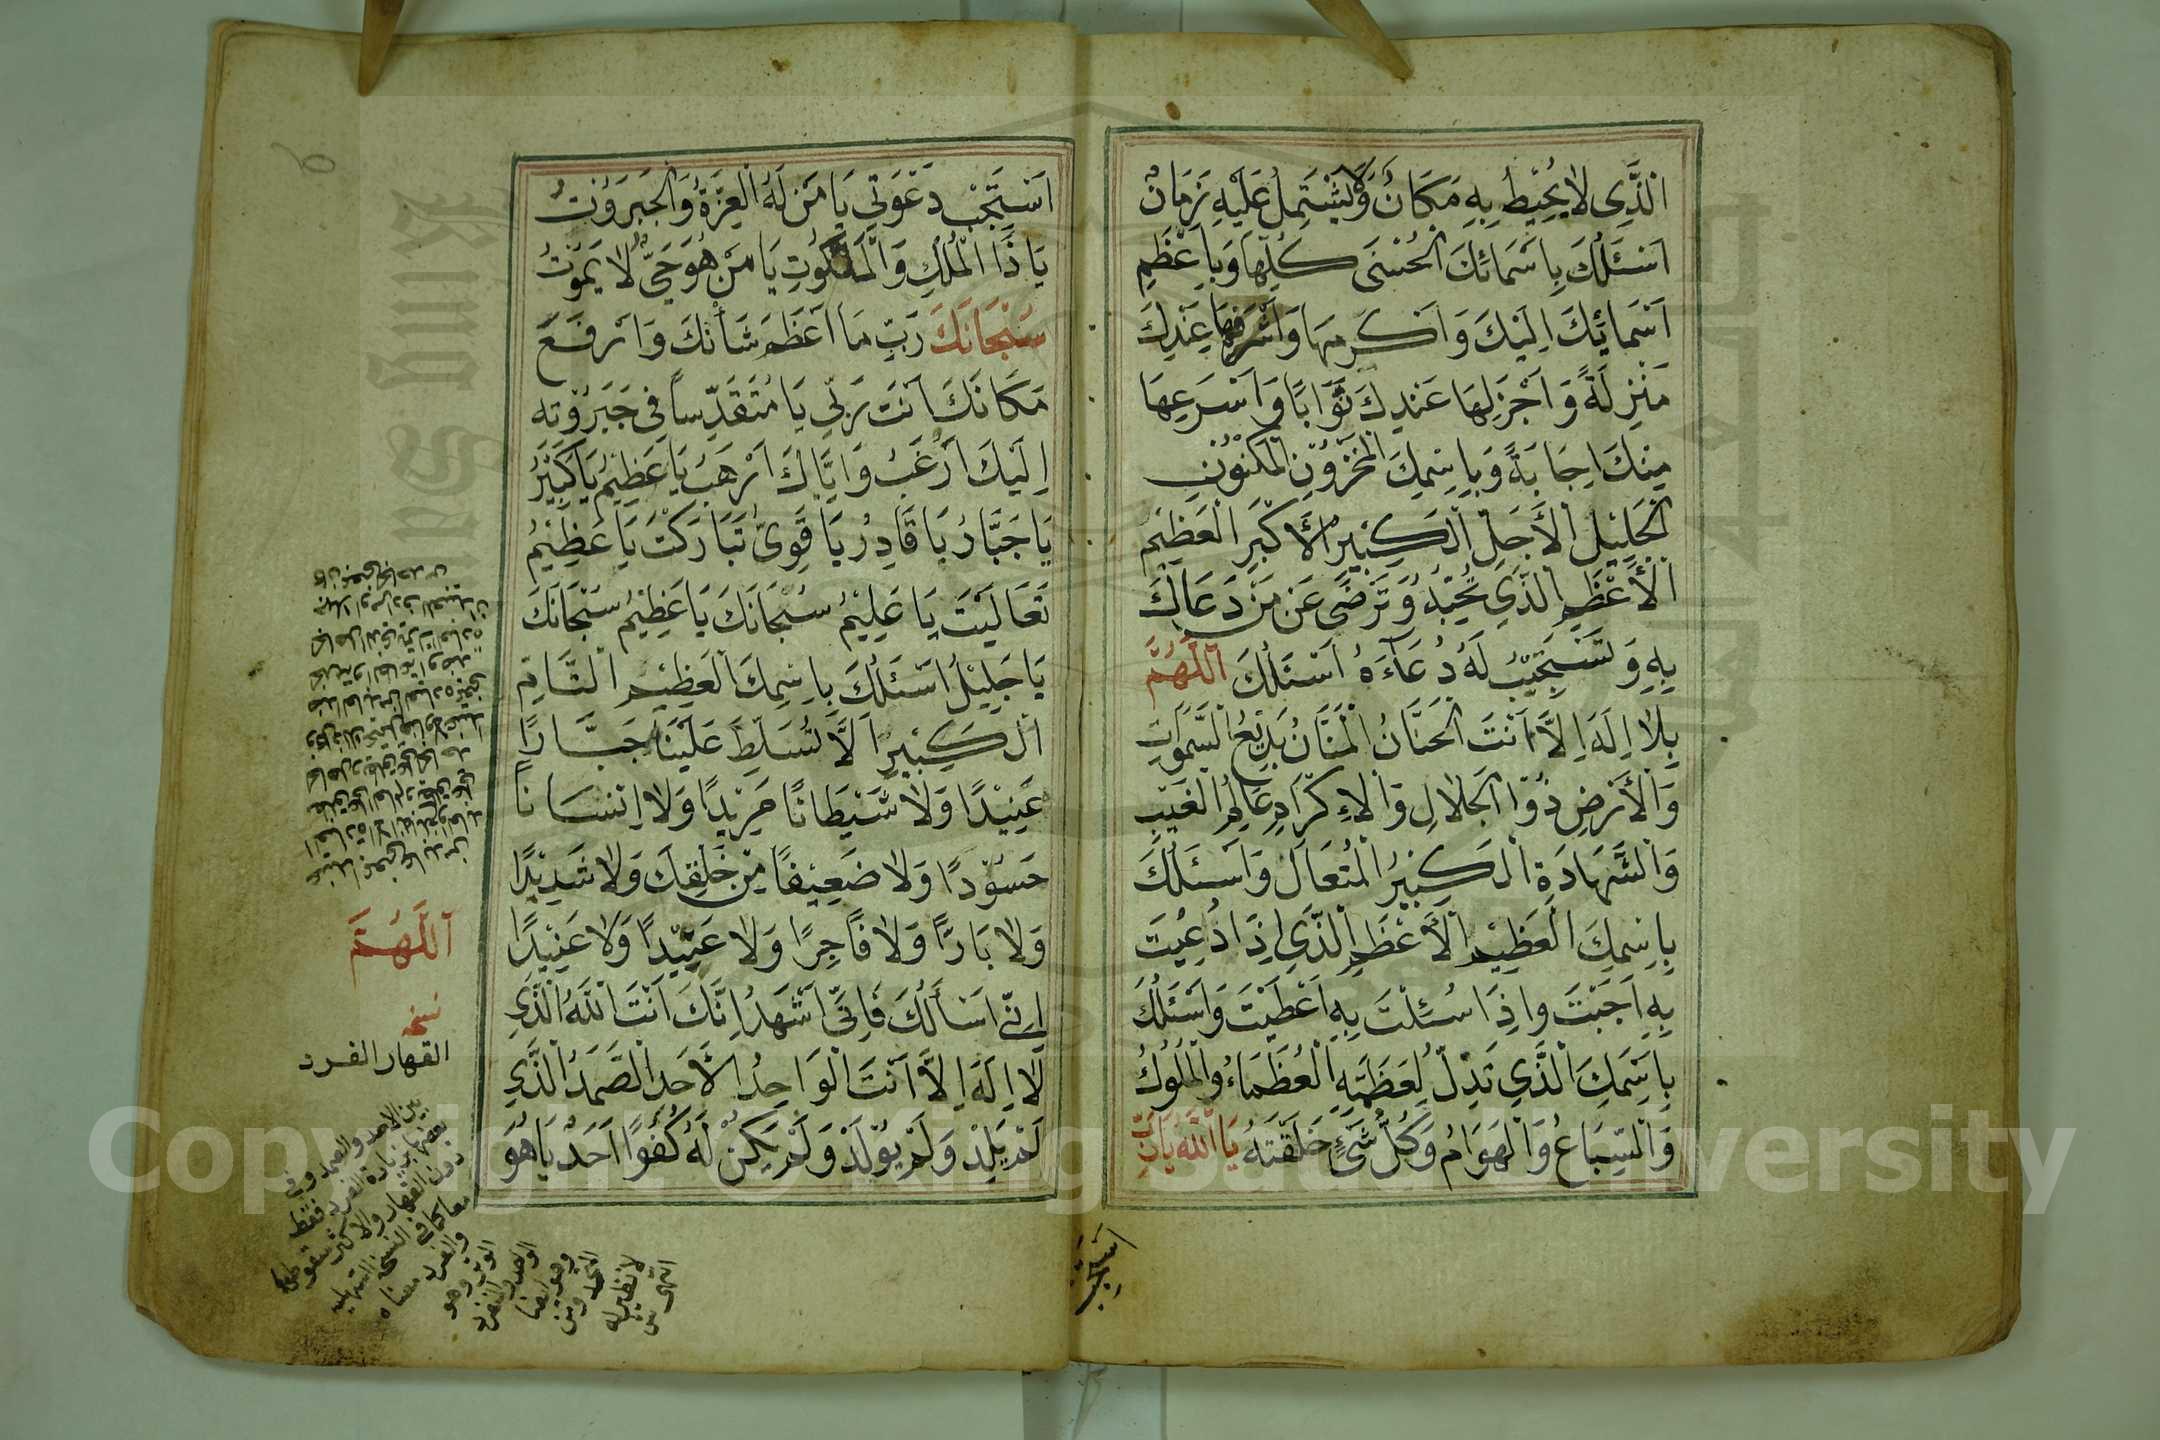 الَّذِي لَا يُحِيْطُ بِهِ مَكَانٌ وَلَا يَشْتَمِلُ عَلَيْهِ زَمَانٌ
اَسْئَلُكَ بِاَسْمَائِكَ الْحُسْنَى كُلِّهَا وَبِاَعْظَمِ
اَسْمَائِكَ اِلَيْكَ وَاَكْرَمِهَا وَاَشْرَفِهَا عِنْدَكَ
مَنْزِلَةً وَاَجْزَلِهَا عِنْدَكَ ثَوَابًا وَاَسْرَعِهَا
مِنْكَ اِجَابَةً وَبِاِسْمِكَ الْمَخْزُوْنِ الْمَكْنُوْنِ
الْجَلِيْلِ الْاَجَلِّ الْكَبِيْرِ الْاَكْبَرِ الْعَظِيْمِ
الْاَعْظَمِ الَّذِي تُحِبُّهُ وَتَرْضَى عَنْ مَنْ دَعَاكَ
بِهِ وَتَسْتَجِيْبُ لَهُ دُعَآءَهُ اَسْئَلُكَ اَللّٰهُمَّ
بِلَا اِلَهَ اِلَّا اَنْتَ الْحَنَّانُ الْمَنَّانُ بَدِيْعُ السَّمَوَاتِ
وَالْاَرْضِ ذُوْا الْجَلَالِ وَالْاِكْرَامِ عَالِمُ الْغَيْبِ
وَالشَّهَادَةِ الْكَبِيْرُ الْمُتَعَالُ وَاَسْئَلُكَ
بِاِسْمِكَ الْعَظِيْمِ الْاَعْظَمِ الَّذِي اِذَا دُعِيْتَ
بِهِ اَجَبْتَ وَاِذَا سُئِلْتَ بِهِ اَعْطَيْتَ وَاَسْئَلُكَ
بِاِسْمِكَ الَّذِي تَذِلُّ لِعَظَمَتِهِ الْعُظَمَاءُ وَالْمُلُوكُ
وَالسِّبَاعُ وَالْهَوَامُ وَكُلُّ شَيْءٍ خَلَقْتَهُ يَا اَللّٰهُ يَارَبِّ
اَسْتَجِبْ
اَسْتَجِبْ دَعْوَتِي يَا مَنْ لَهُ الْعِزَّةُ وَالْجَبَرُوْتُ
يَا ذَا الْمُلْكِ وَالْمَلَكُوتِ يَا مَنْ هُوَ حَيٌّ لَا يَمُوْتُ
سُبْحَانَكَ رَبِّ مَا اَعْظَمَ شَأْنَكَ وَاَرْفَعَ
مَكَانَكَ اَنْتَ رَبِّي يَا مُتَقَدِّسًا فِي جَبَرُوْتِهِ
اِلَيْكَ اَرْغَبُ وَاِيَّاكَ اَرْهَبُ يَا عَظِيْمُ يَا كَبِيْرُ
يَا جَبَّارُ يَا قَادِرُ يَا قَوِيُّ تَبَارَكْتَ يَا عَظِيْمُ
تَعَالَيْتَ يَا عَلِيْمُ سُبْحَانَكَ يَا عَظِيْمُ سُبْحَانَكَ
يَا جَلِيْلُ اَسْئَلُكَ بِاِسْمِكَ الْعَظِيْمِ التَّامِّ
الْكَبِيْرِ اَلَّا تُسَلِّطَ عَلَيْنَا جَبَّارًا
عَنِيْدًا وَلَا شَيْطَانًا مَرِيْدًا وَلَا اِنْسَانًا
حَسُوْدًا وَلَا ضَعِيْفًا مِنْ خَلْقِكَ وَلَا شَدِيْدًا
وَلَا بَارًّا وَلَا فَاجِرًا وَلَا عَبِيْدًا وَلَا عَنِيْدًا
اِنِّي اَسْأَلُكَ فَاِنِّي اَشْهَدُ اِنَّكَ اَنْتَ اللّٰهُ الَّذِي
لَا اِلَهَ اِلَّا اَنْتَ الْوَاحِدُ الْاَحَدُ الصَّمَدُ الَّذِي
لَمْ يَلِدْ وَلَمْ يُوْلَدْ وَلَمْ يَكُنْ لَهُ كُفُوًا اَحَدٌ يَا هُوَ
اَللّٰهُمَّ
نسخه
القهار الفرد
بين الاحد والصمد وفي
بعضها بزيادة الفرد فقط
دون القهار والاكثر سقوطهما
معا كما في النسخة السهلية
والفرد معناه
الوتر وهو
الواحد والمنفرد
وهو ايضا
لا نظير له
انتهى
Copyright © King Saud University
King Saud